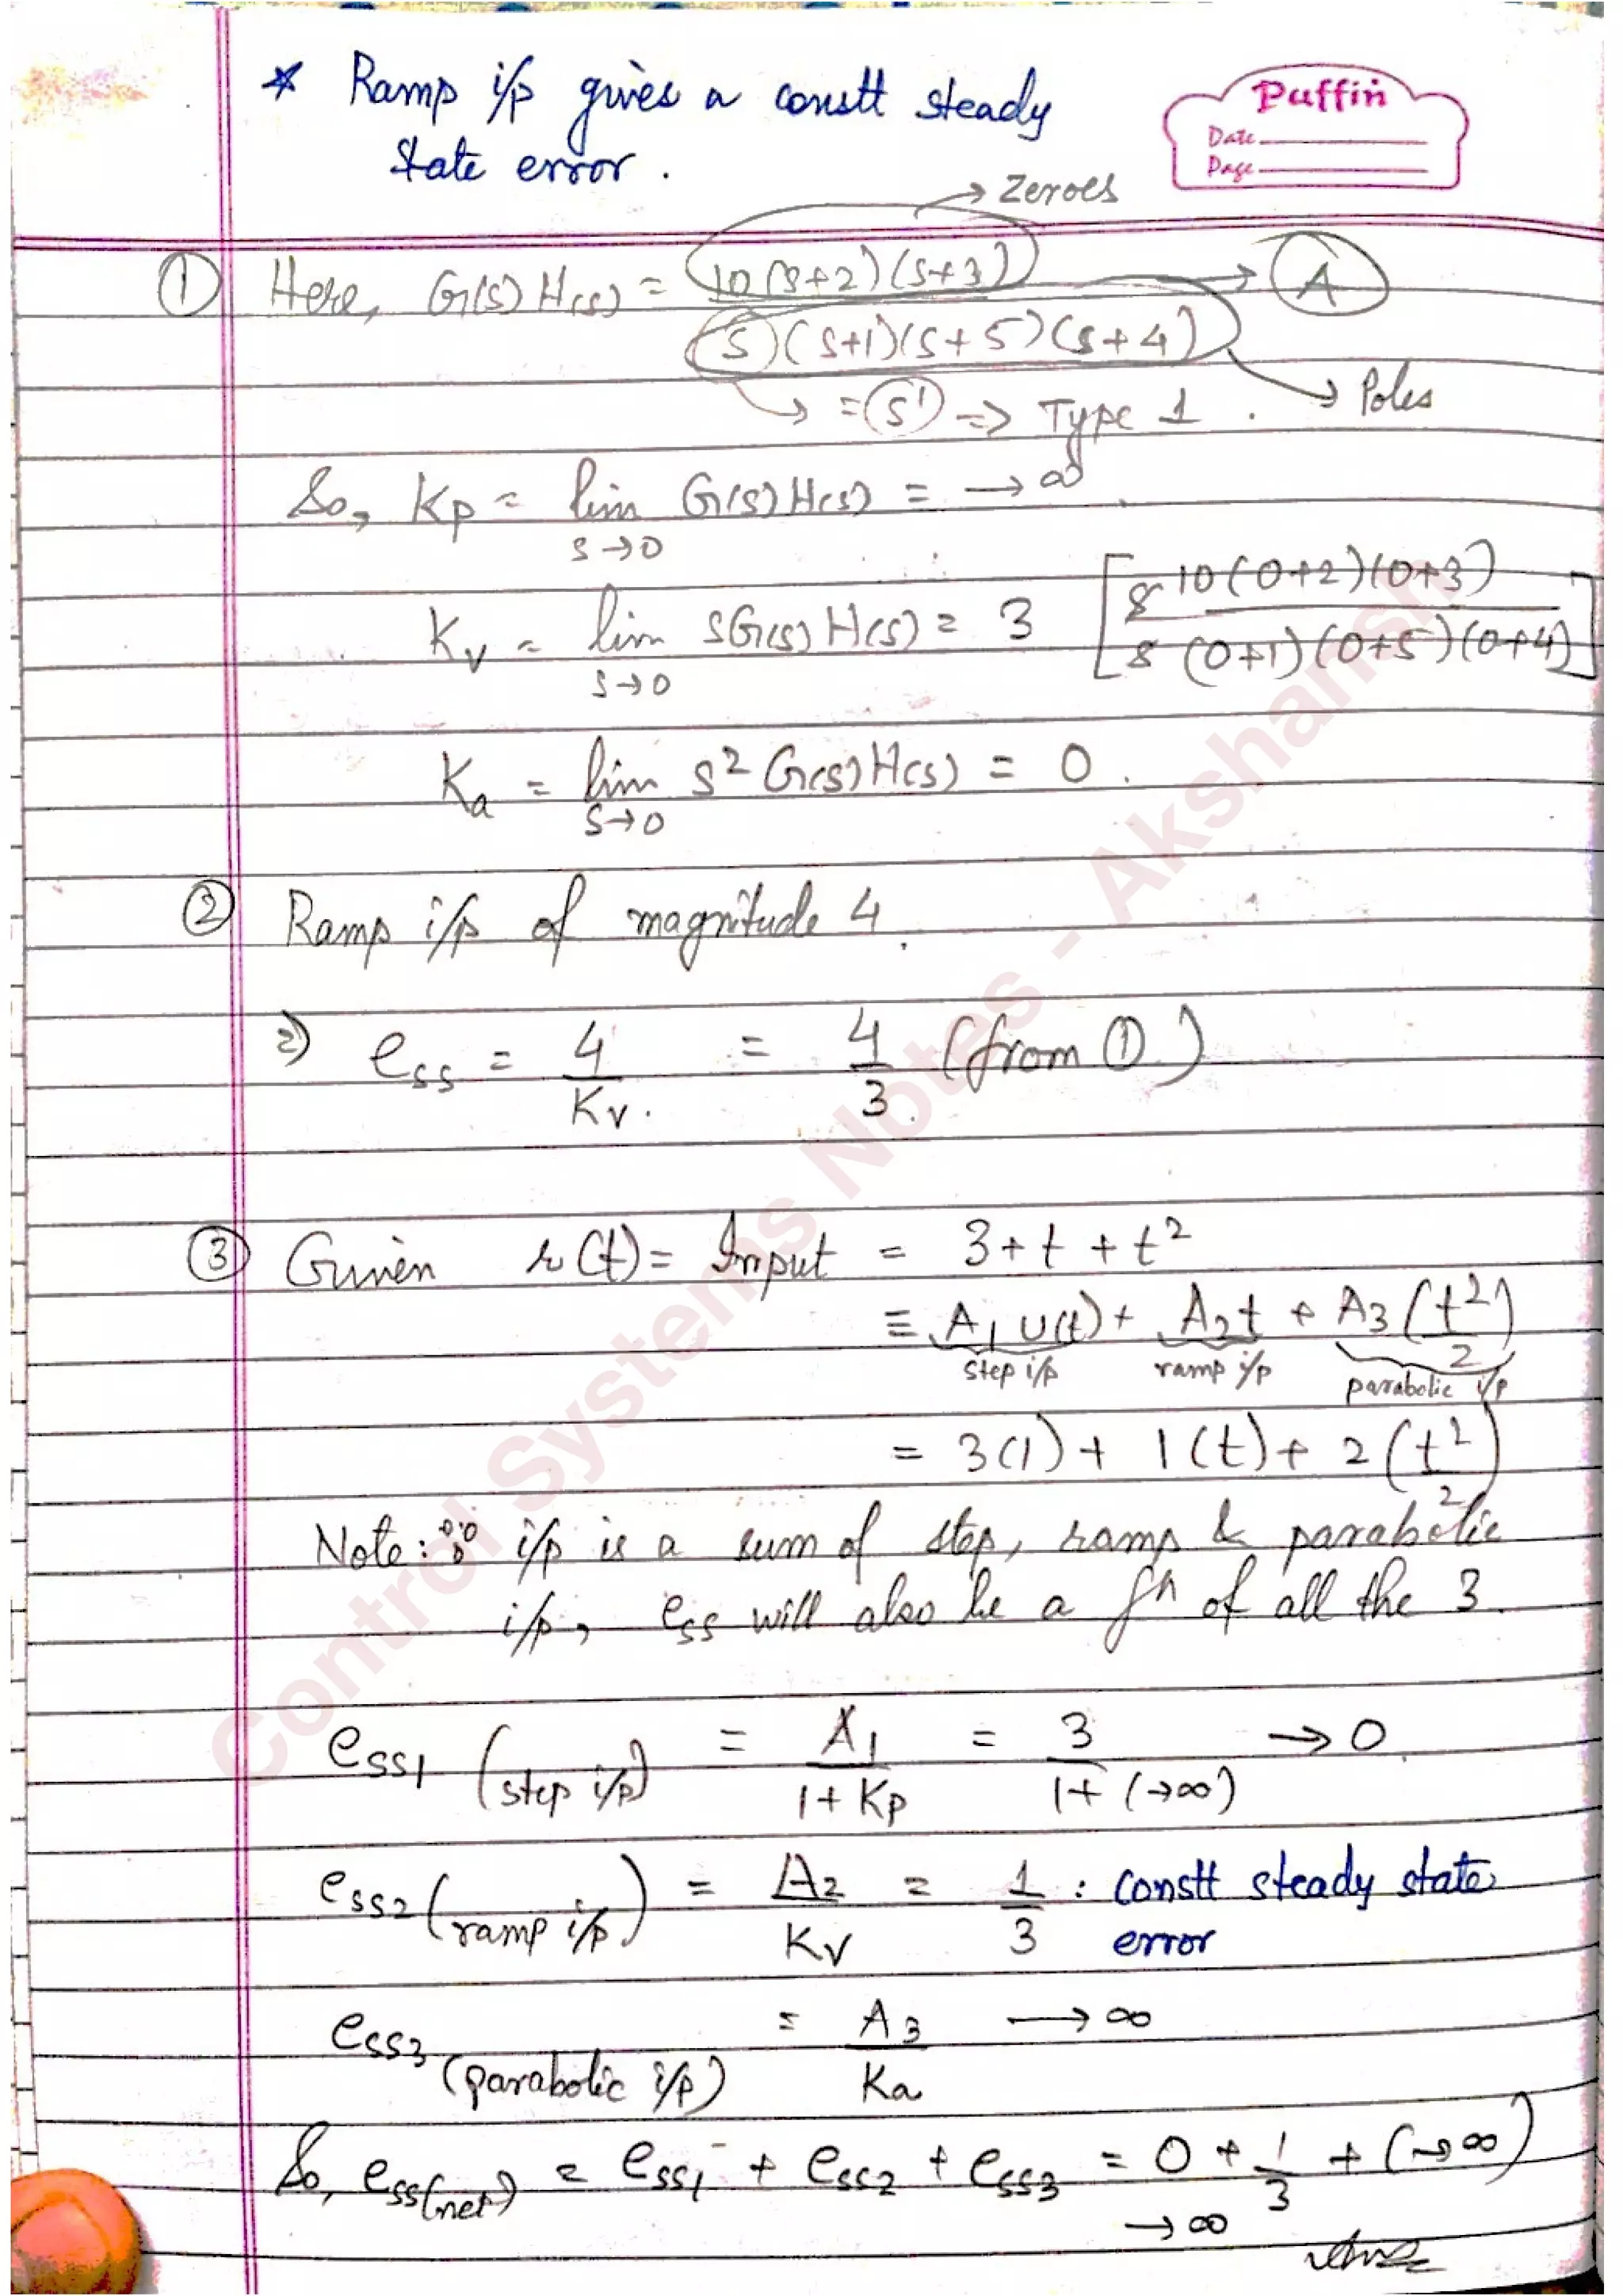 * Ramp i/p gives a constt steady
state error.
Puffin
Date
Page
→ Zeroes
① Here, G(s)H(s) = 10(s+2)(s+3) → A
(s)(s+1)(s+5)(s+4)
→ = s¹ => Type 1. → Poles
So, Kp = lim G(s)H(s) = → ∞
s→0
Kv = lim sG(s)H(s) = 3 [s 10(0+2)(0+3)
s→0 s (0+1)(0+5)(0+4)]
Ka = lim s² G(s)H(s) = 0.
s→0
② Ramp i/p of magnitude 4.
=> ess = 4 = 4 (from ①)
Kv. 3
③ Given r(t) = Input = 3+t+t²
≡ A1 u(t) + A2t + A3 (t²/2)
step i/p ramp i/p parabolic i/p
= 3(1) + 1(t) + 2(t²/2)
Note: ∵ i/p is a sum of step, ramp & parabolic
i/p, ess will also be a fn of all the 3.
ess1 (step i/p) = A1 = 3 → 0.
1+Kp 1+(→∞)
ess2 (ramp i/p) = A2 = 1 : constt steady state
Kv 3 error
ess3 (parabolic i/p) = A3 → ∞
Ka
So, ess(net) = ess1 + ess2 + ess3 = 0 + 1/3 + (→∞)
→ ∞
Control Systems Notes - Akshansh